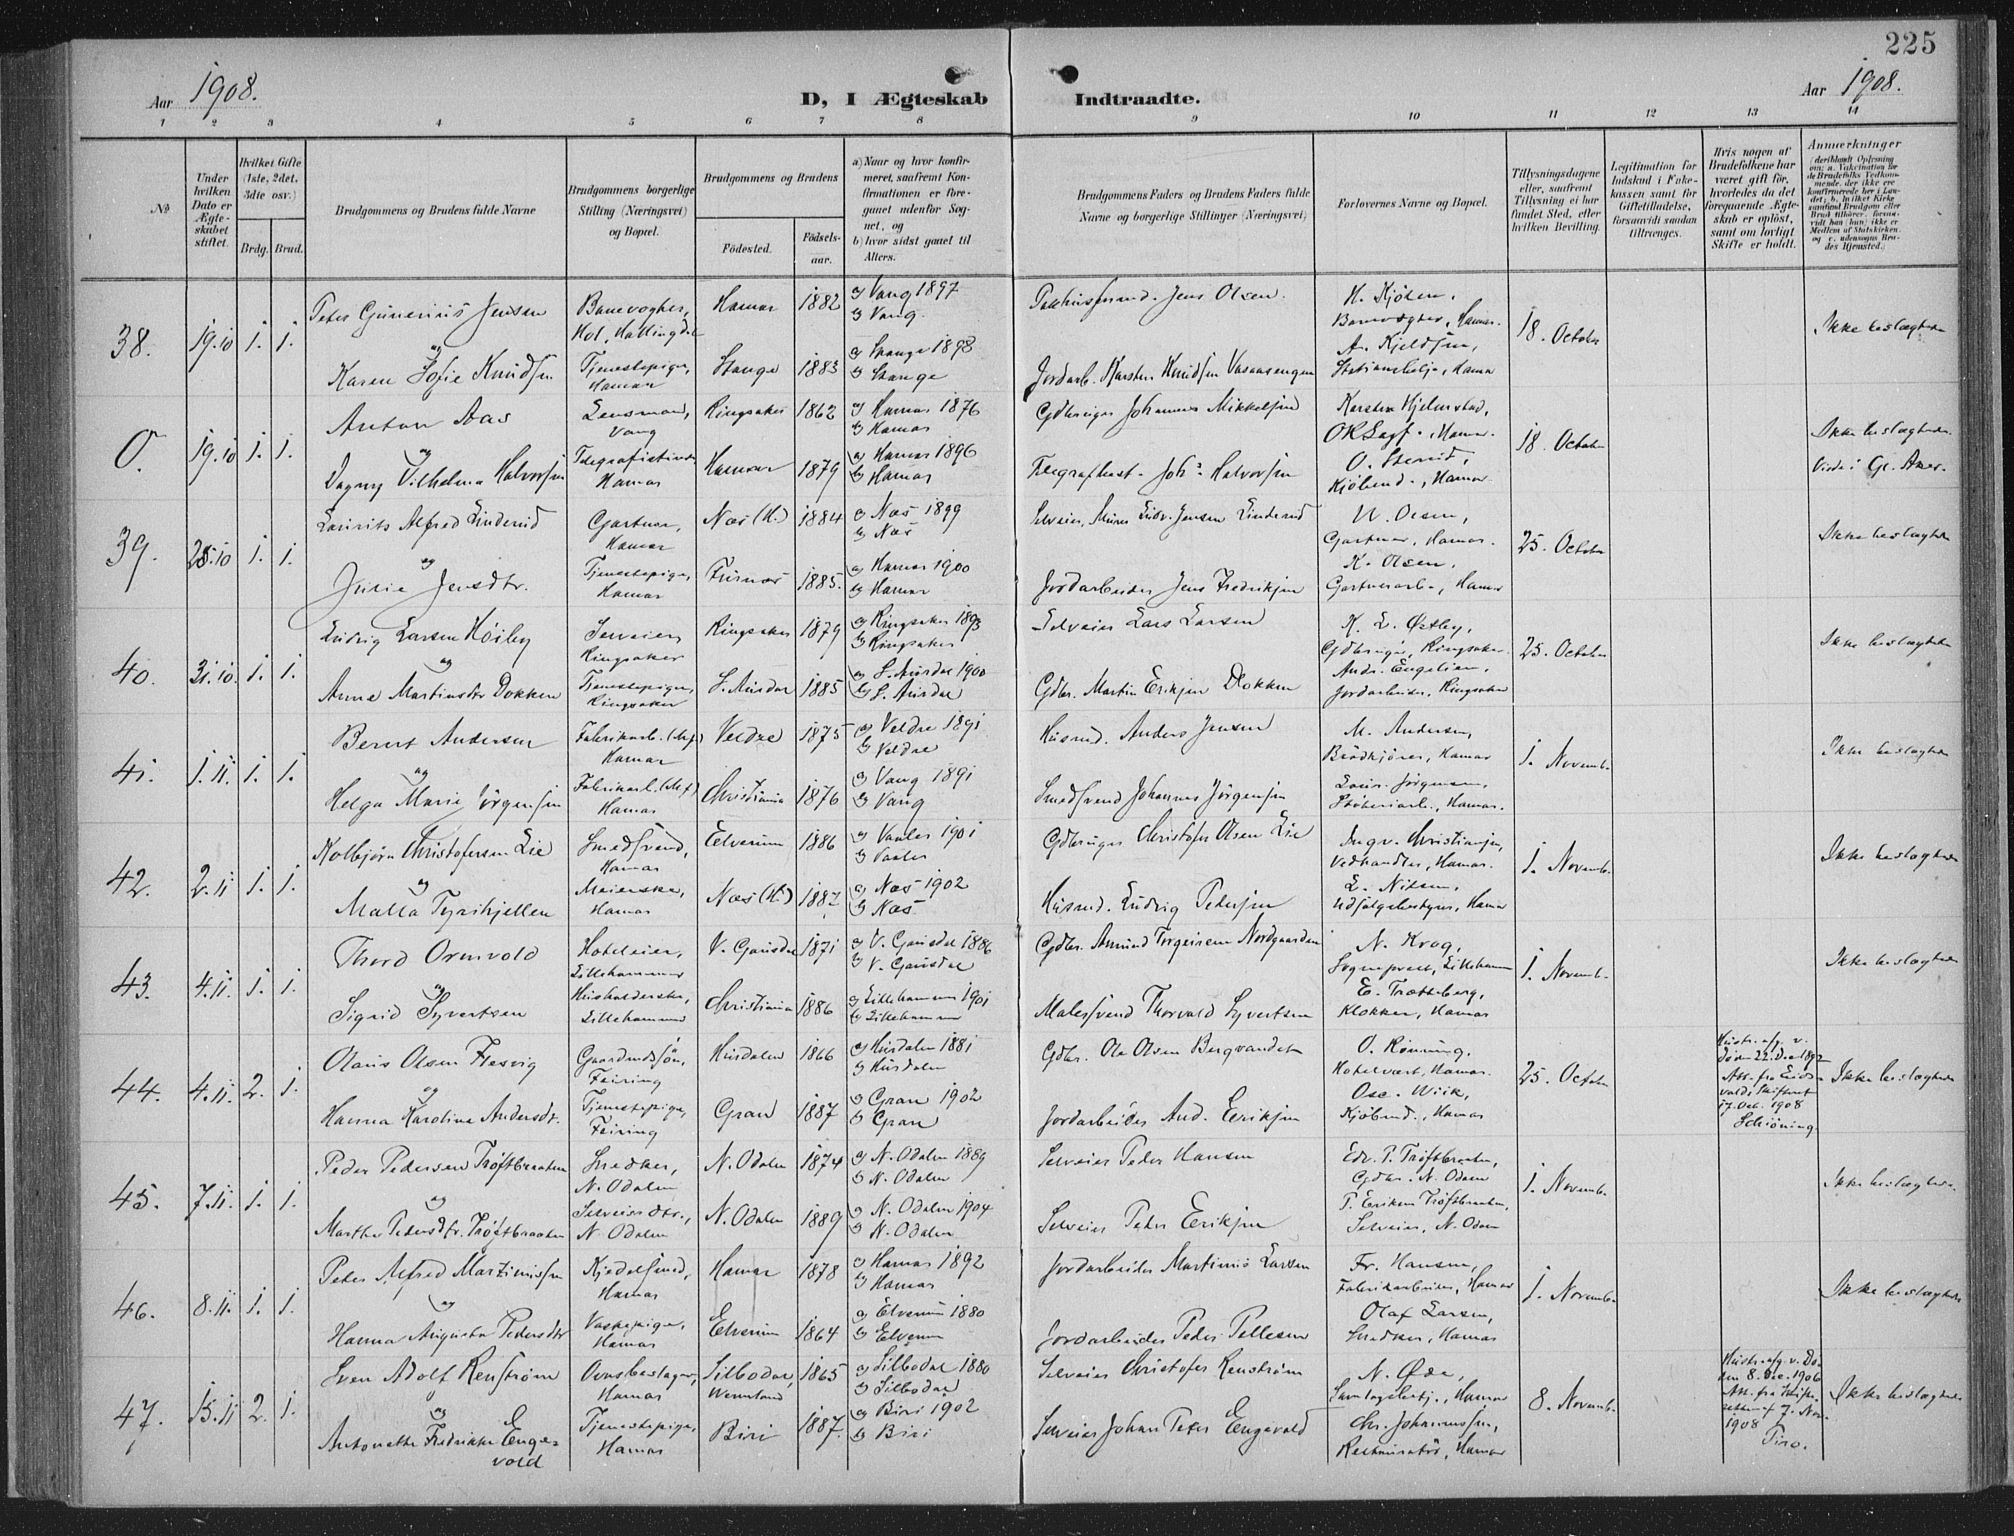 225
Aar 1908.
D, I Ægteskab Indtraadte.
Aar 1908.
1 2 3 4 5 6 7 8 9 10 11 12 13 14
№
Under hvilken Dato er Ægteskabet stiftet.
Hvilket Gifte (1ste, 2det, 3die osv.)
Brdg. Brud.
Brudgommens og Brudens fulde Navne
Brudgommens borgerlige Stilling (Næringsvei) og Bopæl.
Brudgommens og Brudens
Fødested. Fødselsaar.
a) Naar og hvor konfirmeret, saafremt Konfirmationen er foregaaet udenfor Sognet, og
b) hvor sidst gaaet til Alters.
Brudgommens Faders og Brudens Faders fulde Navne og borgerlige Stillinger (Næringsvei)
Forlovernes Navne og Bopæl.
Tillysningsdagene eller, saafremt Tillysning ei har fundet Sted, efter hvilken Bevilling.
Legitimation for Indskud i Enkekassen samt for Giftetilladelse, forsaavidt saadan tiltrænges.
Hvis nogen af Brudefolkene har været gift før, hvorledes da det foregaaende Ægteskab er opløst, samt om lovligt Skifte er holdt.
Anmerkninger
38. 19.10 1. 1.
Peter Gunerius Jensen
Banevogter, Hol, Hallingdal
Hamar 1882
a) Vang 1897
b) Vang
Pakhusformand. Jens Olsen.
H. Kjölsen, Banevogter, Hamar.
18. October
Ikke beslægtede
og
Karen Sofie Knudsen
Tjenestepige, Hamar
Stange 1883
a) Stange 1898
b) Stange
Jordarb. Karsten Knudsen Vasaasengen
A. Kjeldsen,
Hamar
0. 19.10 1. 1.
Anton Aas
Lensmand, Vang
Ringsaker 1862
a) Hamar 1876
b) Hamar
Gdbruger Johannes Mikkelsen
Karsten Hjelmstad,
Hamar.
18. October
Ikke beslægtede.
og
Dagny Vilhelma Halvorsen
Telegrafistinde Hamar
Hamar 1879
a) Hamar 1896
b) Hamar
Joh. Halvorsen
O. Stensrud, Kjøbmd., Hamar
39. 25.10 1. 1.
Laurits Alfred Linderud
Gartner, Hamar
Næs (H.) 1884
a) Næs 1899
b) Næs
Selveier, Murer Ludv. Jensen Linderud
N. Olsen, Gartner, Hamar.
25. October
Ikke beslægtede
og
Julie Jensdtr.
Tjenestepige, Hamar
Furnes 1885.
a) Hamar 1900
b) Hamar
Jordarbeider Jens Fredriksen
K. Olsen, Gartnerarb., Hamar
40. 31.10. 1. 1.
Ludvig Larsen Høiby
Selveier, Ringsaker
Ringsaker 1879
a) Ringsaker 1893
b) Ringsaker
Selveier Lars Larsen
K. L. Østby, Gdbruger, Ringsaker.
25. October
Ikke beslægtede
og
Anne Martinsdtr Dokken
Tjenestepige, Ringsaker
S. Aurdal 1885
a) S. Aurdal 1900
b) S. Aurdal
Gdbr. Martin Eriksen Dokken
Andr. Engelien, Jordarbeider, Ringsaker
41. 1.11. 1. 1.
Bernt Andersen
Fabrikarb. Hamar
Veldre 1875
a) Veldre 1891
b) Veldre
Husmd. Anders Jensen
M. Andersen, Brödkjører, Hamar
1. Novemb.
Ikke beslægtede
og
Helga Marie Jørgensen
Fabrikarb. Hamar
Christiania 1876
a) Vang 1891
b) Vang
Smedsvend Johannes Jörgensen
Jörgensen, Støberiarb., Hamar.
42. 2.11. 1. 1.
Kolbjørn Christofersen Lie
Smedsvend, Hamar
Elverum 1886
a) Vaaler 1901
b) Vaaler
Gdbruger Christofer Olsen Lie
Ingv. Christiansen, Vedhandler, Hamar.
1. Novemb.
Ikke beslægtede
og
Malla Tyrihjellen
Meierske, Hamar
Næs (H.) 1887
a) Næs 1902
b) Næs
Husmd. Ludvig Pedersen
L. Nilsen, Udsalgsbestyrer, Hamar
43. 4.11. 1. 1.
Thord Ormvold
Hoteleier, Lillehammer
V. Gausdal 1871
a) V. Gausdal 1886
b) V. Gausdal
Gdbr. Amund Torgeirsen Nordgaarden
N. Krag, Sogneprest, Lillehammer
1. Novemb.
Ikke beslægtede
og
Sigrid Syvertsen
Husholderske, Lillehammer
Christiania 1886
a) Lillehammer 1901
b) Lillehammer
Malersvend Thorvald Syvertsen
E. Trætteberg, Klokker, Hamar
44. 4.11. 2. 1.
Olaus Olsen Flesvig
Gaardmdssøn, Feiring
Hurdalen 1866
a) Hurdalen 1881
b) Hurdalen
Gdbr. Ole Olsen Bergvandet
O. Rönning, Hotelvært, Hamar.
25. October
Hustr. afg. v. Døden 22. Dec 1892 Att. fra Eidsvolds Skifteret 17. Oct. 1908 Schiöning.
Ikke beslægtede
og
Hanna Karoline Andersdtr.
Tjenestepige, Feiring
Gran 1887
a) Gran 1902
b) Gran
Jordarbeider And. Eriksen
Osc. Wiik, Kjöbmd., Hamar
45. 7.11. 1. 1.
Peder Pedersen Trøftbraaten
Snedker, N. Odalen
N. Odalen 1874
a) N. Odalen 1889
b) N. Odalen
Selveier Peder Hansen
Edv. P. Trøftbraaten, Gdbr. N. Odalen
1. Novemb.
Ikke beslægtede.
og
Marthe Pedersdtr. Trøftbraaten
Selveierdtr., N. Odalen
N. Odalen 1889
a) N. Odalen 1904
b) N. Odalen
Selveier Peder Eriksen
P. Eriksen Trøftbraaten, Selveier, N. Odalen
46. 8.11. 1. 1.
Peter Alfred Martiniussen
Kjedelsmed, Hamar
Hamar 1878
a) Hamar 1892
b) Hamar
Jordarbeider Martinius Larsen
Fr. Hansen, Fabrikarbeider, Hamar
1. Novemb.
Ikke beslægtede
og
Hanna Augusta Pedersdtr
Vaskepige, Hamar
Elverum 1864
a) Elverum 1880
b) Elverum
Jordarbeider Peder Pellesen
Olaf Larsen, Snedker, Hamar
47. 15.11 2. 1.
Sven Adolf Renström
Ovnsbeslager, Hamar
Silbodal, Wermland 1865
a) Silbodal 1880
b) Silbodal
Selveier Christofer Renström
N. Øde, Hamar
8. Novemb.
Hustr. afg. v. Döden 8. Dec. 1906 Att. fra Skifteretten af 7. Nov. 1908
Ikke beslægtede
og
Antonette Fredrikke Engevold
Tjenestepige, Hamar
Biri 1887.
a) Biri 1902
b) Biri
Selveier Johan Peter Engevold
Chr. Johannessen, Restauratör, Hamar